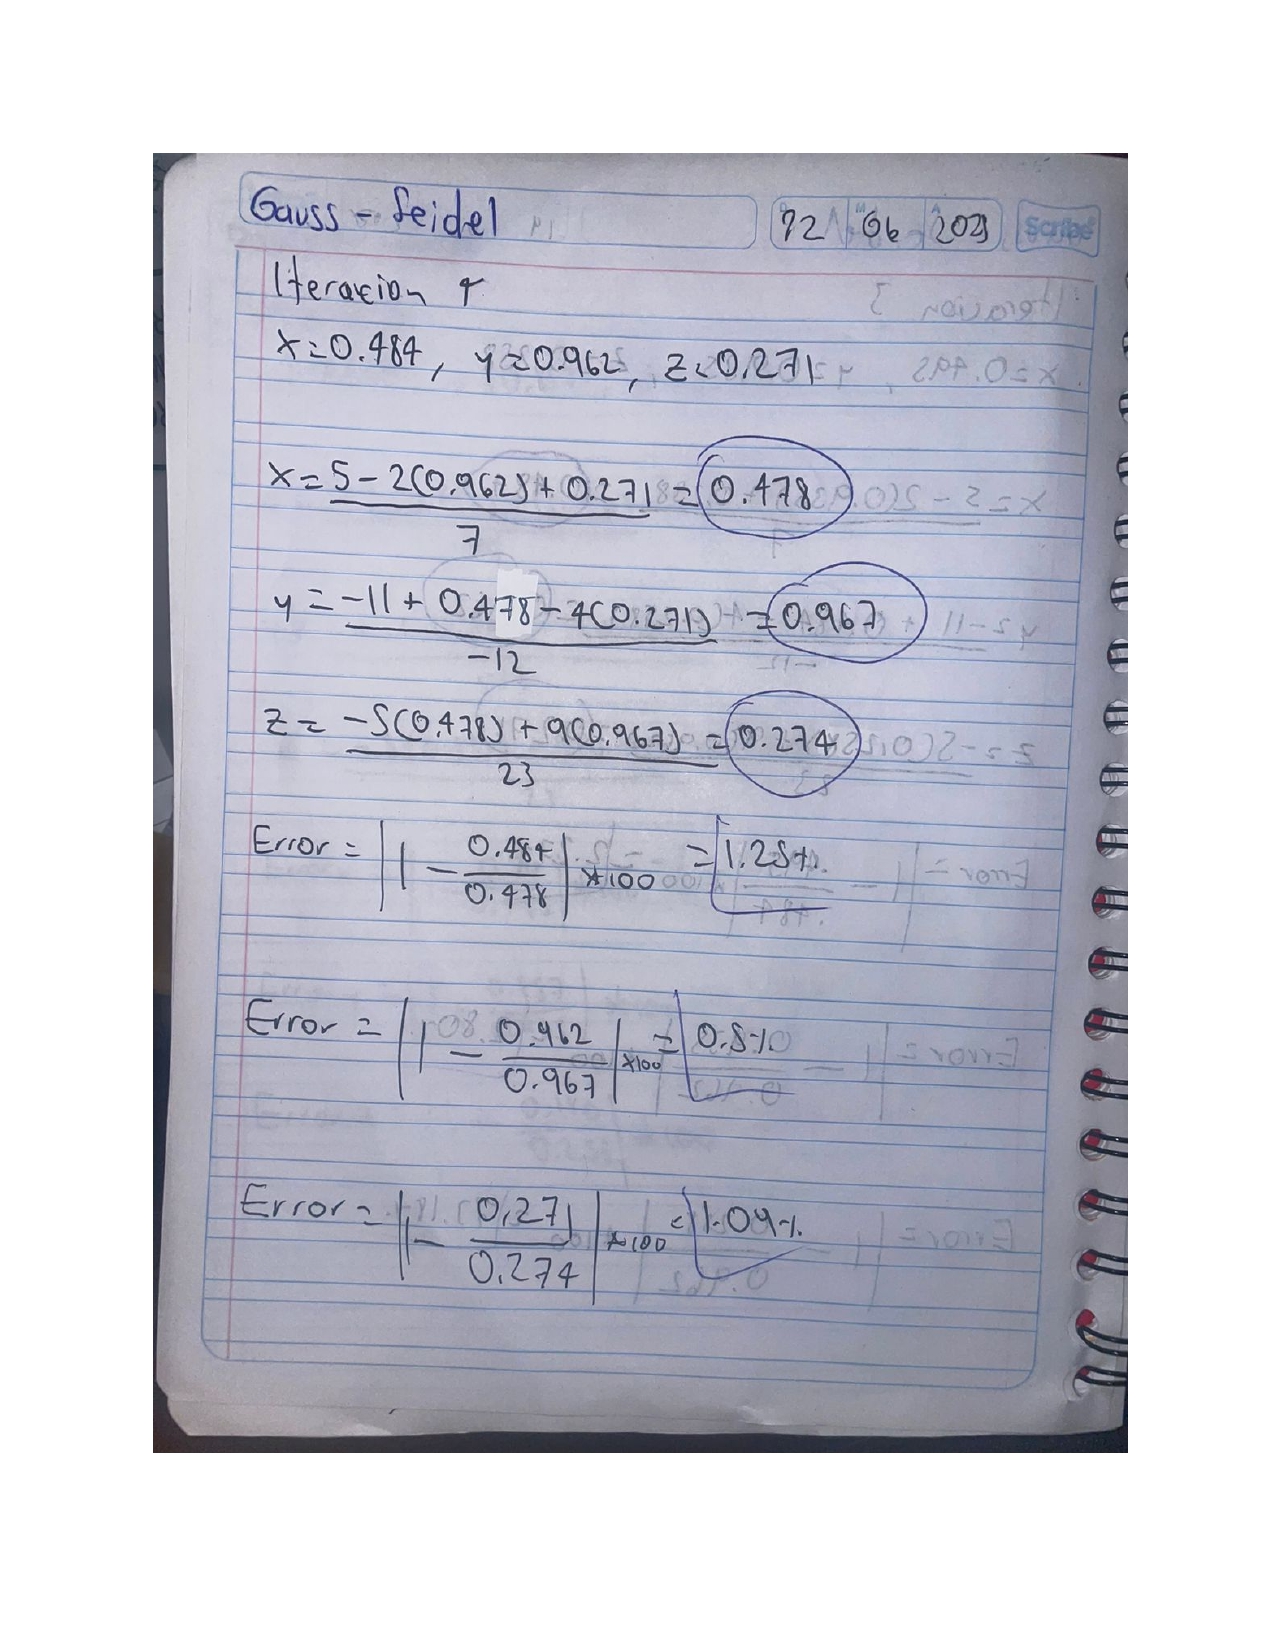 Gauss - Seidel 12 06 2023 Scribe
Iteracion 4
x=0.484, y=0.962, z=0.271
x = 5 - 2(0.962) + 0.271 = 0.478
7
y = -11 + 0.478 - 4(0.271) = 0.967
-12
z = -5(0.478) + 9(0.967) = 0.274
23
Error = |1 - 0.484 / 0.478| *100 = 1.25%
Error = |1 - 0.962 / 0.967| *100 = 0.5%
Error = |1 - 0.271 / 0.274| *100 = 1.09%